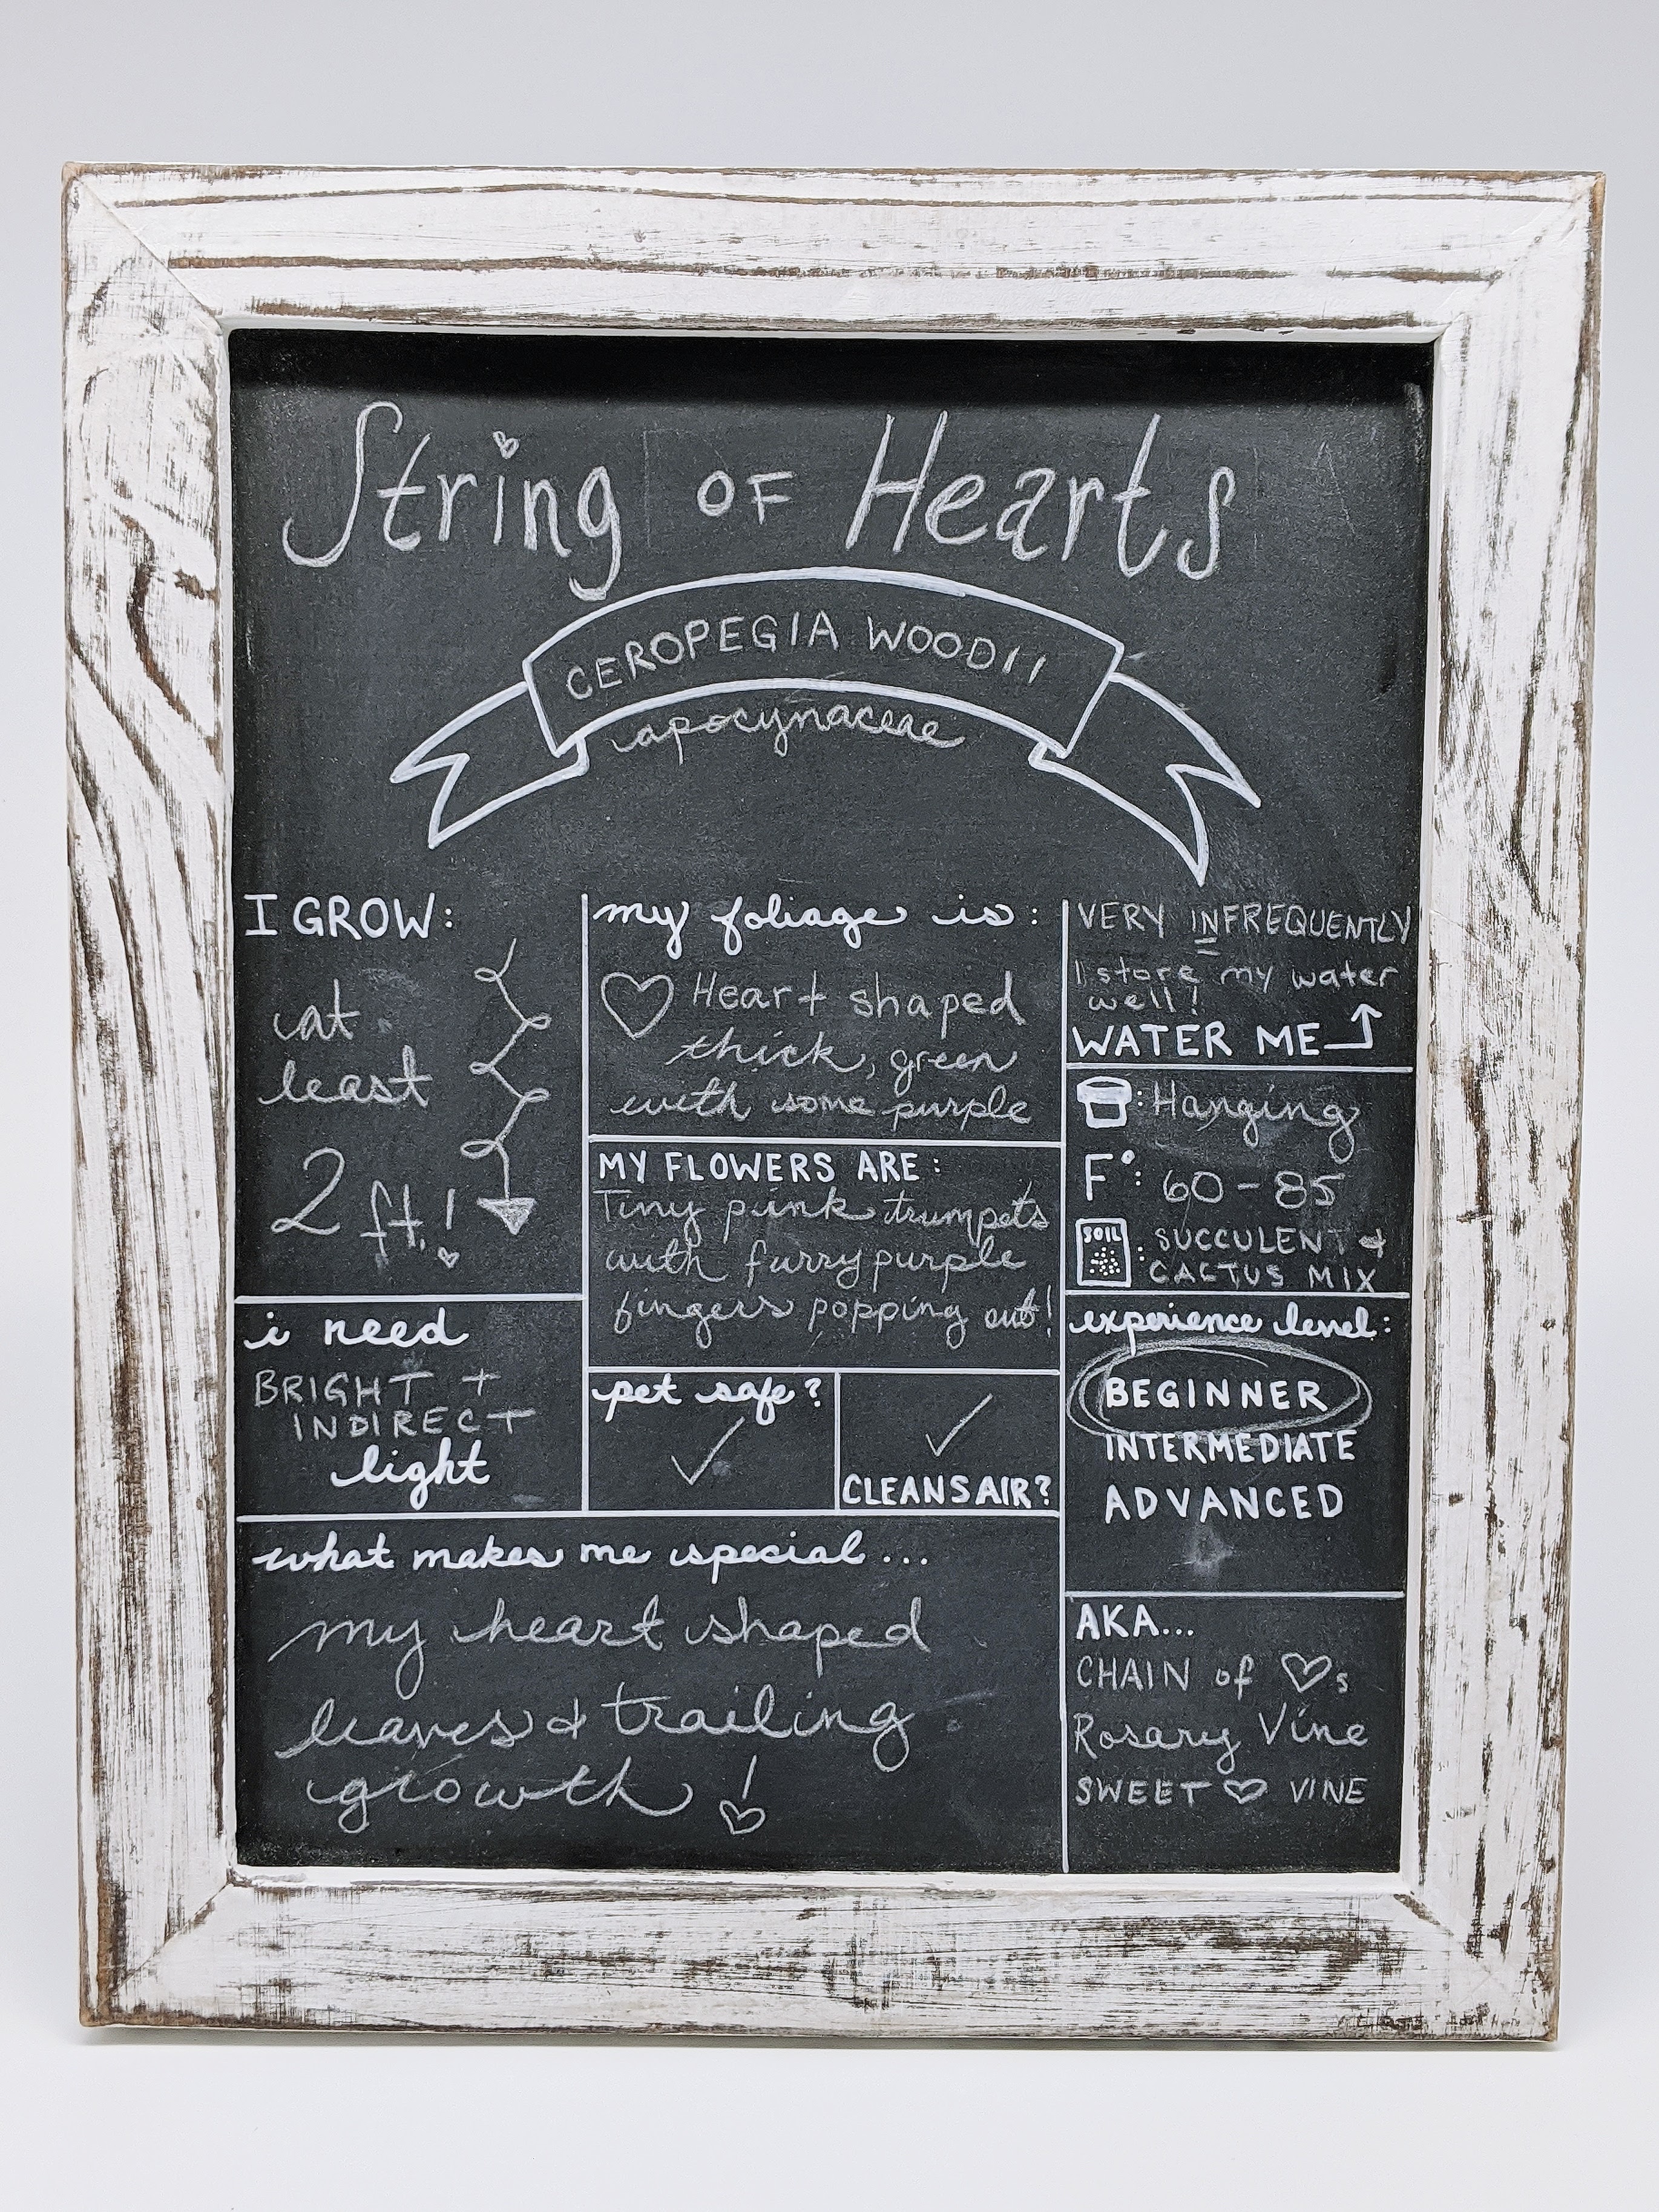 String OF Hearts
CEROPEGIA WOODII
apocynaceae
I GROW:
at
least
2 ft.!
i need
BRIGHT +
INDIRECT
light
my foliage is:
Heart shaped
thick, green
with some purple
MY FLOWERS ARE:
Tiny pink trumpets
with furry purple
fingers popping out!
pet safe?
CLEANS AIR?
what makes me special...
my heart shaped
leaves & trailing
growth!
VERY INFREQUENTLY
I store my water
well!
WATER ME
: Hanging
F°: 60-85
SOIL : SUCCULENT &
CACTUS MIX
experience level:
BEGINNER
INTERMEDIATE
ADVANCED
AKA...
CHAIN of ♡s
Rosary Vine
SWEET ♡ VINE